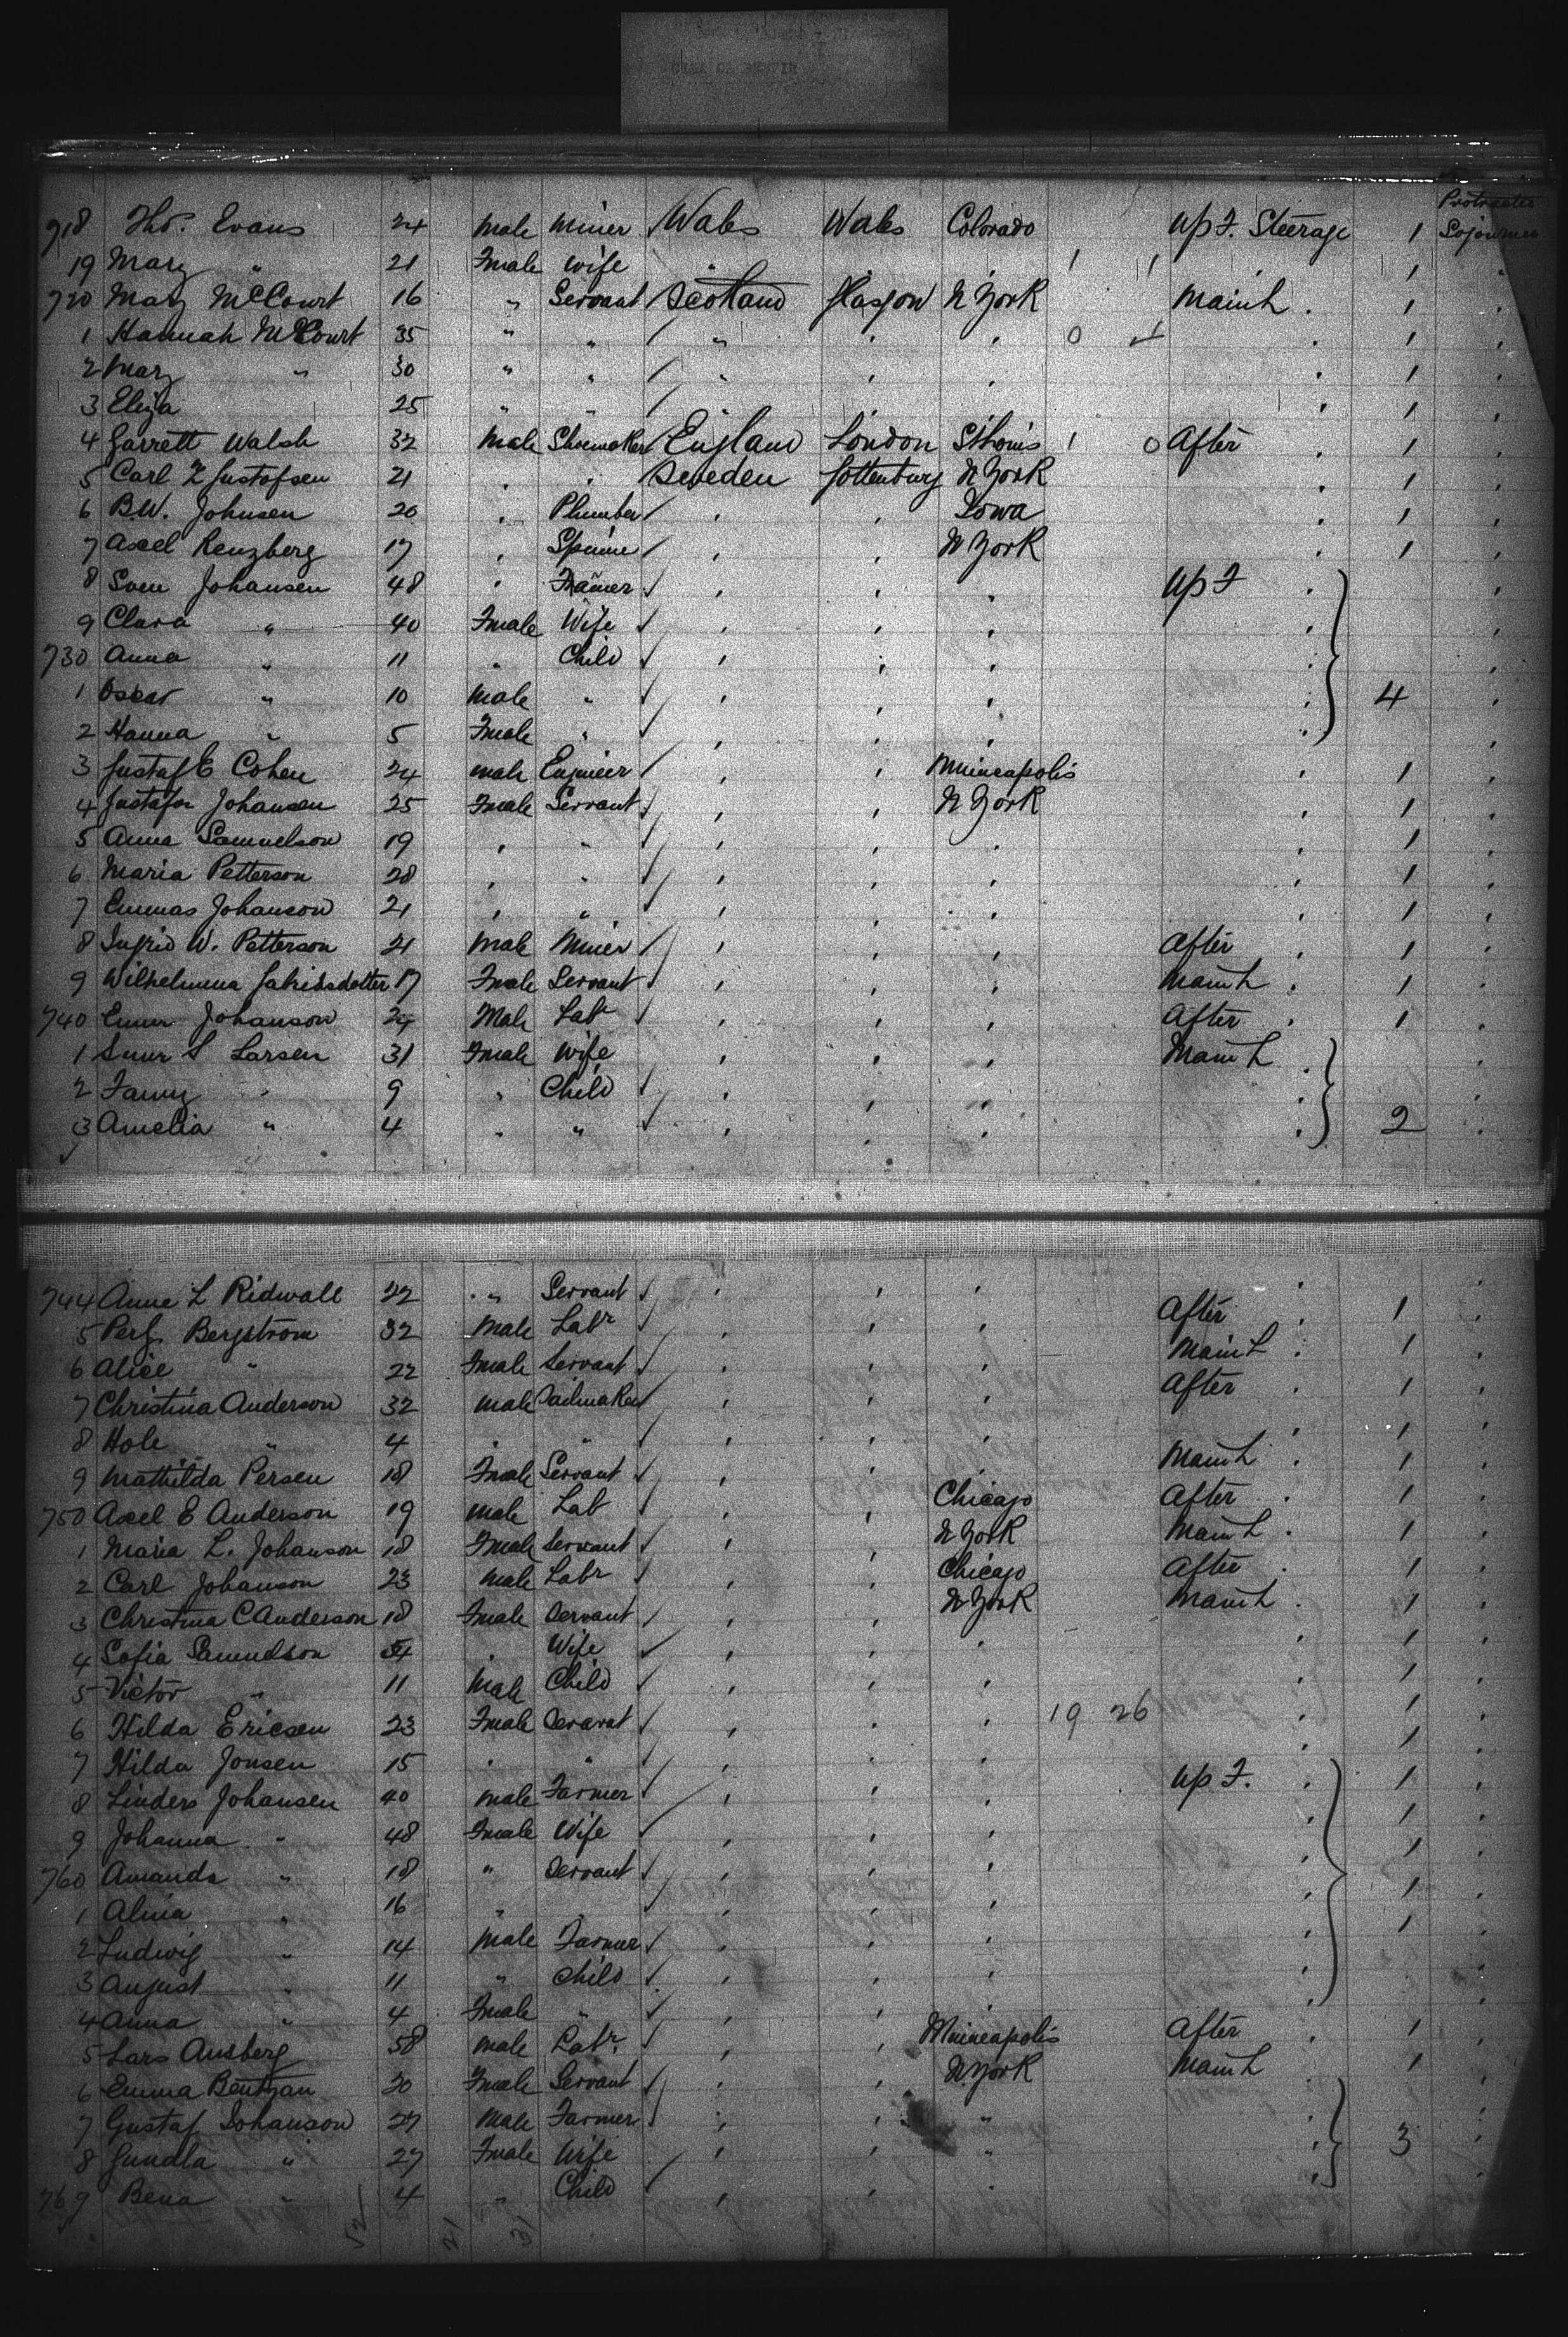 Protracted
718 Thos. Evans 24 Male Miner Wales Wales Colorado Up F. Steerage 1 Sojourner
19 Mary " 21 Fmale Wife " 1 1 1
720 Mary McCourt 16 " Servant Scotland Glasgow N York Main L 1
1 Hannah McCourt 35 " " " 0 1
2 Mary " 30 " " " 1
3 Eliza 25 " " 1
4 Garrett Walsh 32 Male Shoemaker England London St Louis 1 0 After 1
5 Carl Gustafsen 21 Sweden Gottenburg N York 1
6 B.W. Johnsen 20 Plumber Iowa 1
7 Axel Renzberg 17 N York 1
8 Sven Johansen 48 Up F
9 Clara " 40 Fmale Wife
730 Anna " 11 " Child
1 Oscar " 10 Male " 4
2 Hanna " 5 Fmale "
3 Gustaf E Cohen 24 Male Engineer Minneapolis 1
4 Gustafon Johansen 25 Fmale Servant N York 1
5 Anna Samuelson 19 " 1
6 Maria Petterson 28 " 1
7 Emmas Johanson 21 " 1
8 Ingrid W. Petterson 21 Male Miner After 1
9 Wilhelmina 17 Fmale Servant Main L 1
740 Johanson 24 Male Lab After 1
1 L Larsen 31 Fmale Wife Main L
2 Fanny " 9 " Child
3 Amelia " 4 " 2
744 Anne L Ridwall 22 " Servant
5 Bergstrom 32 Male Labr After 1
6 Alice " 22 Fmale Servant Main L 1
7 Christina Anderson 32 Male Sailmaker After 1
8 Hole " 4 " 1
9 Mathilda Persen 18 Fmale Servant Main L 1
750 Axel E Anderson 19 Male Lab Chicago After 1
1 Maria L. Johanson 18 Fmale Servant N York Main L 1
2 Carl Johanson 23 Male Labr Chicago After 1
3 Christina C Anderson 18 Fmale Servant N York Main L 1
4 Sofia Samuelson Wife 1
5 Victor " 11 Male Child 1
6 Hilda Ericsen 23 Fmale Servant 19 26 1
7 Hilda Jonsen 15 " 1
8 Linders Johansen 40 Male Farmer Up F. 1
9 Johanna " 48 Fmale Wife 1
760 Amanda " 18 " Servant 1
1 Alina " 16 " " 1
2 Ludwig " 14 Male Farmer 1
3 August " 11 " Child
4 Anna " 4 Fmale "
5 Lars Ansberg 58 Male Labr Minneapolis After 1
6 Emma Bentzan 30 Fmale Servant N. York Main L 1
7 Gustaf Johanson 27 Male Farmer "
8 Gundla " 27 Fmale Wife " 3
769 Bena " 4 " Child
52 21 31